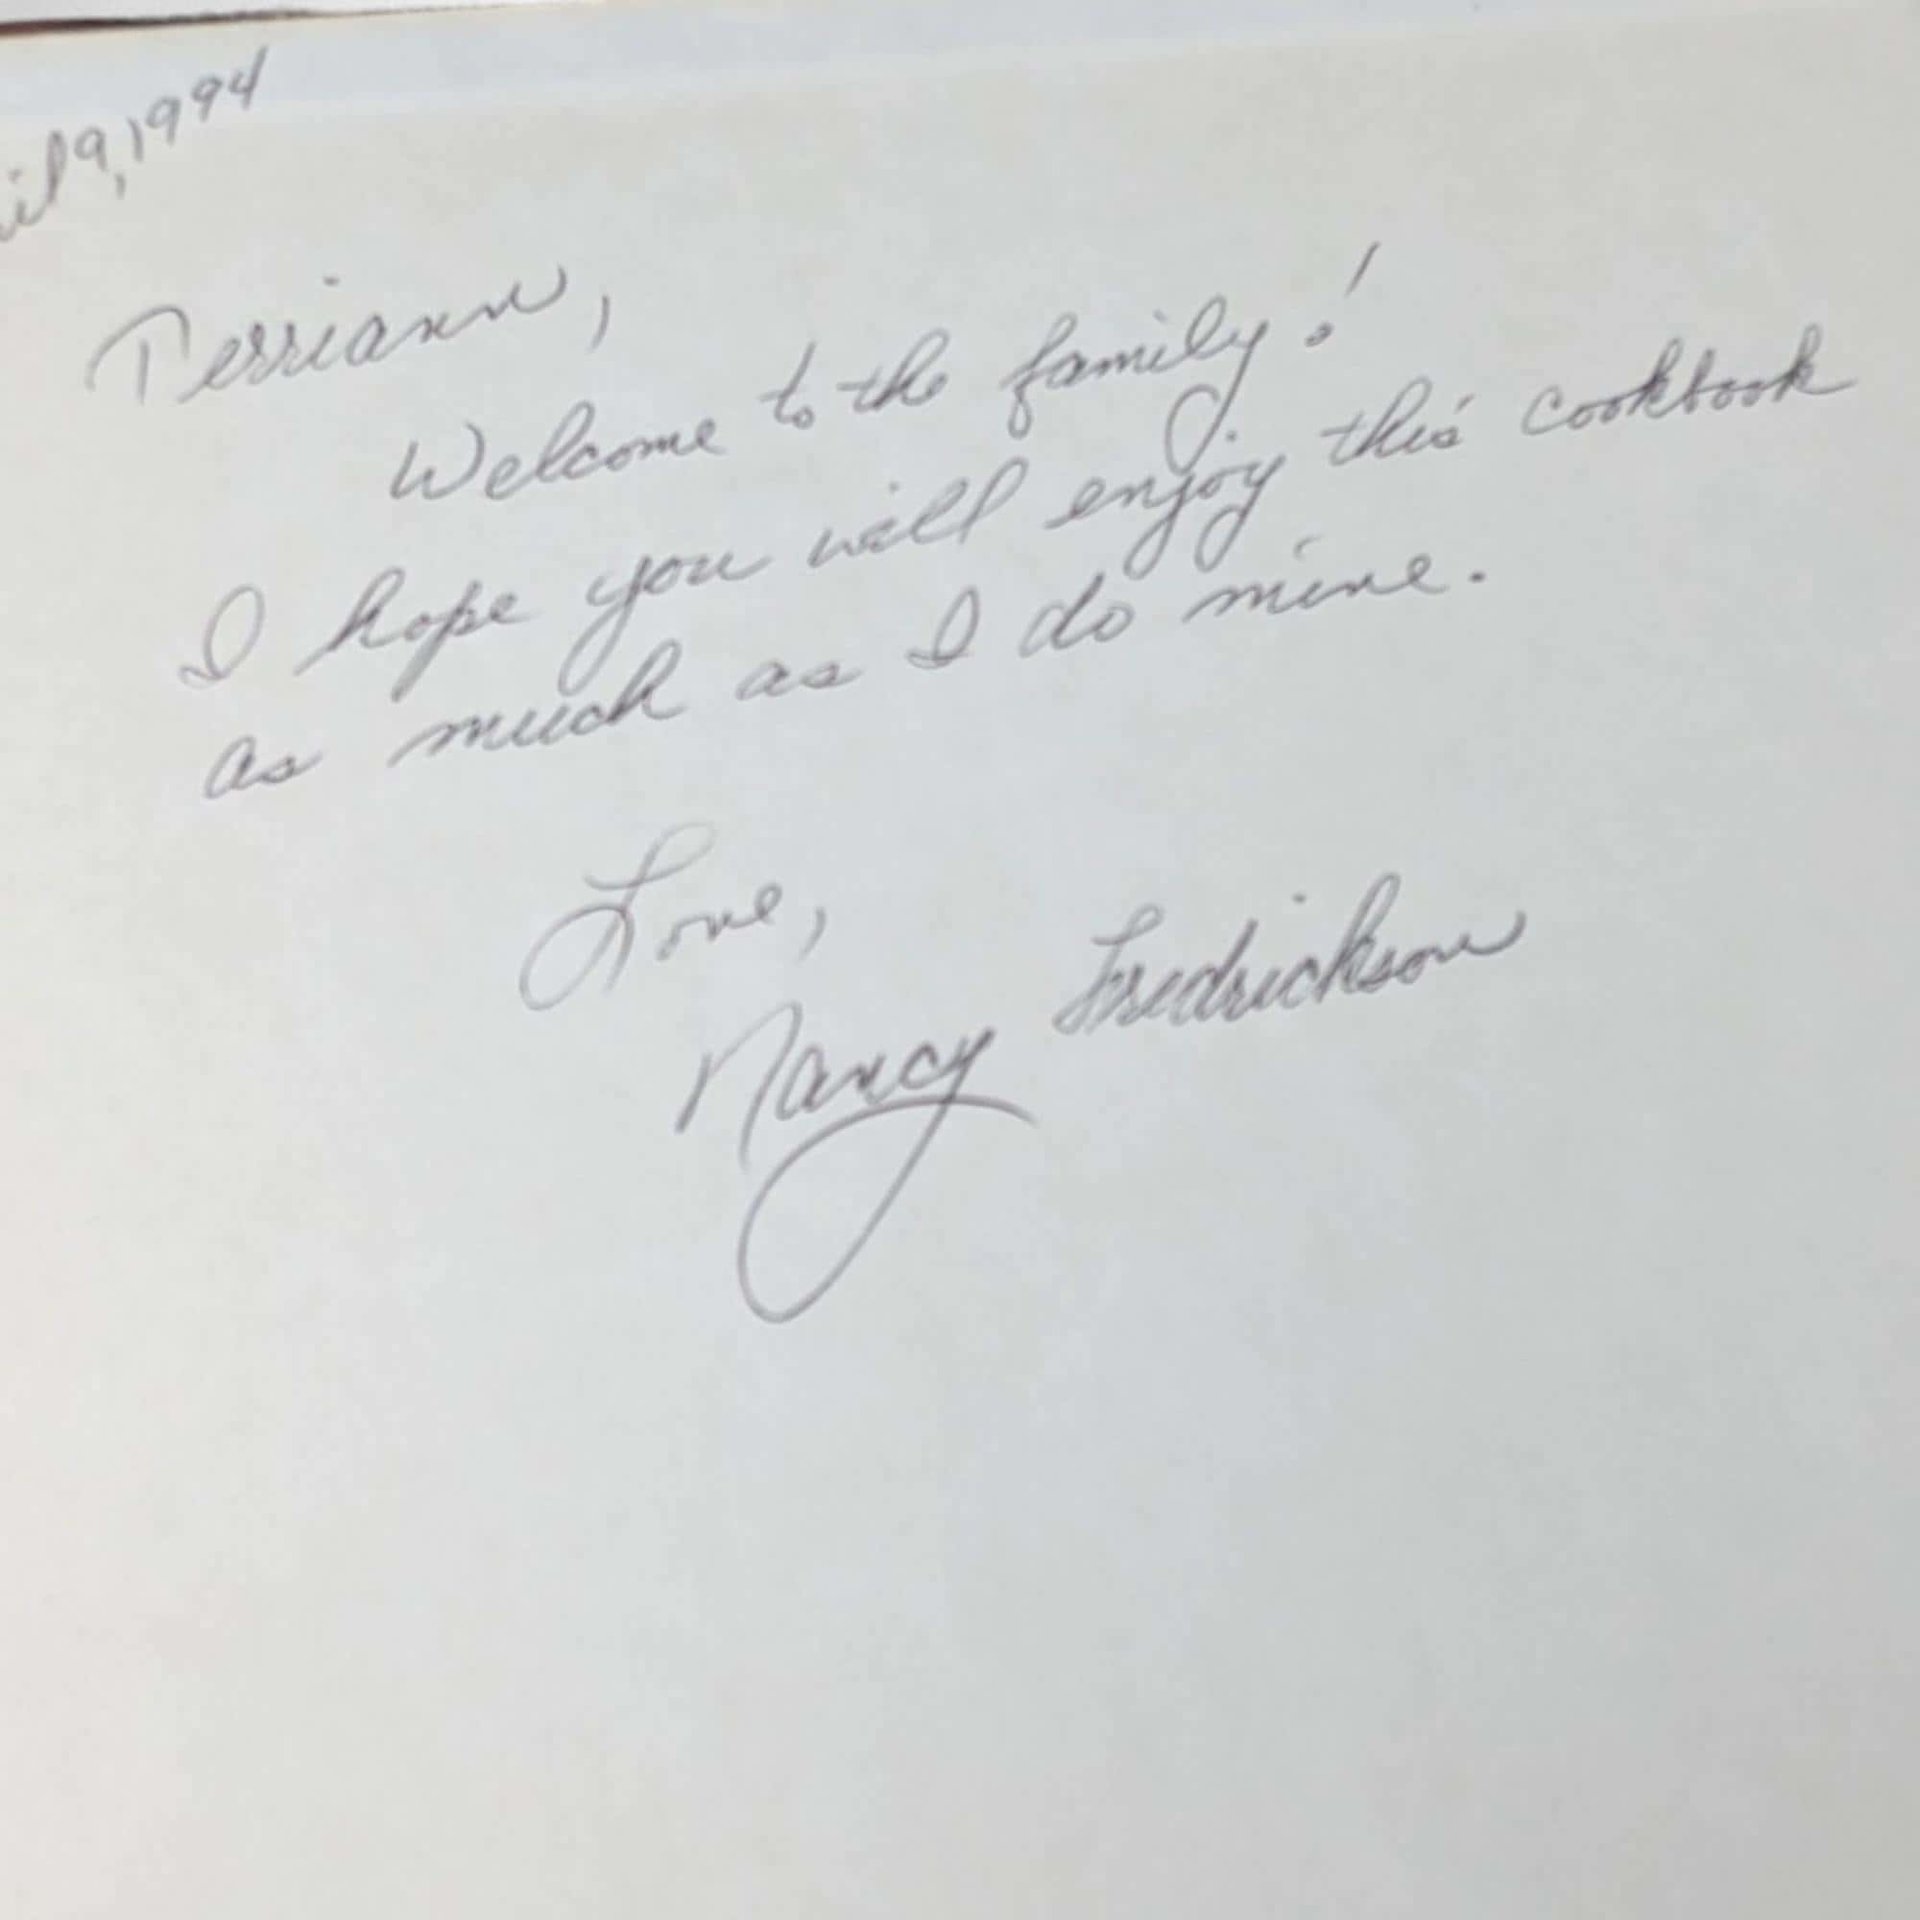 il 9, 1994
Terriann,
Welcome to the family!
I hope you will enjoy this cookbook
as much as I do mine.
Love,
Nancy Fredrickson